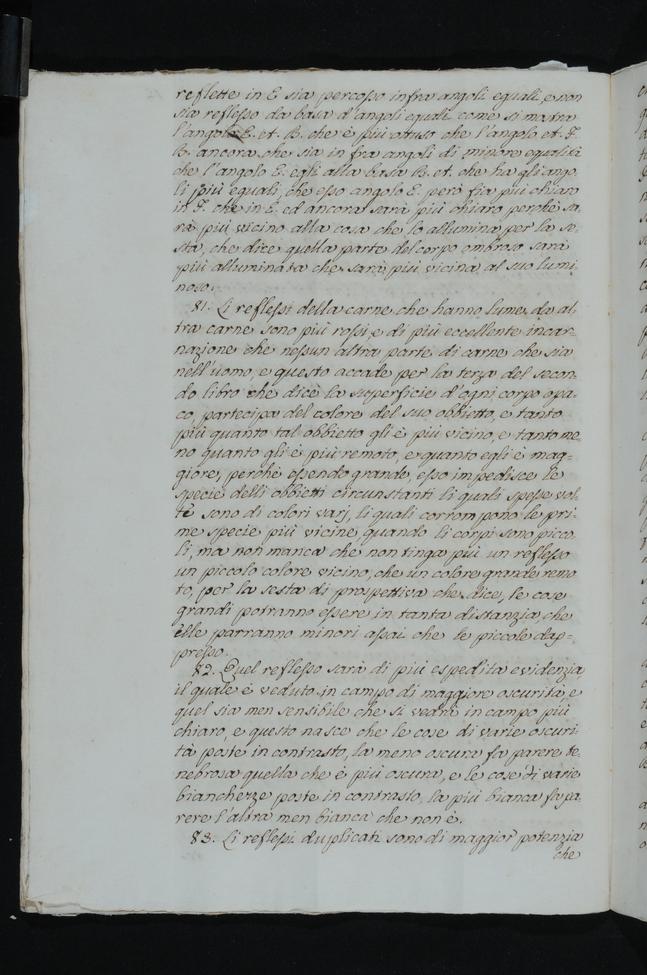 reflette in E sia percosso infra angoli eguali, e non
sia reflesso da basa d'angoli eguali come si mostra
l'angolo E. et. B. che è più ottuso che l'angolo et. F.
B. ancora che sia in fra angoli di minore equalità
che l'angolo E. egli alla basa B. et. che ha gli ango
li più equali, che esso angolo E. però fia più chiaro
in F. che in E. ed ancora sarà più chiaro perchè sa
rà più vicino alla cosa che lo allumina per la se
sta, che dice quella parte del corpo ombroso sarà
più alluminata che sarà più vicina al suo lumi
noso.
81. Li reflessi della carne che hanno lume da al
tra carne sono più rossi, e di più eccellente incar
nazione che nessun altra parte di carne che sia
nell'uomo, e questo accade per la terza del secon
do libro che dice la superficie d'ogni corpo opa
co, partecipa del colore del suo obbietto, e tanto
più quanto tal obbietto gli è più vicino, e tanto me
no quanto gli è più remoto, e quanto egli è mag
giore, perchè essendo grande, esso impedisce le
specie delli obbietti circunstanti li quali spesse vol
te sono di colori varj, li quali corrompono le pri
me specie più vicine, quando li corpi sono picco
li, ma non manca che non tinga più un reflesso
un piccolo colore vicino, che un colore grande remo
to, per la sesta di prospettiva che dice, le cose
grandi potranno essere in tanta distanzia, che
elle parranno minori assai che le piccole dap=
presso.
82. Quel reflesso sarà di più espedita evidenzia
il quale è veduto in campo di maggiore oscurità, e
quel sia men sensibile che si vedrà in campo più
chiaro, e questo nasce che le cose di varie oscuri
tà poste in contrasto, la meno oscura fa parere te
nebrosa quella che è più oscura, e le cose di varie
bianchezze poste in contrasto, la più bianca fa pa
rere l'altra men bianca che non è.
83. Li reflessi duplicati sono di maggior potenzia
che